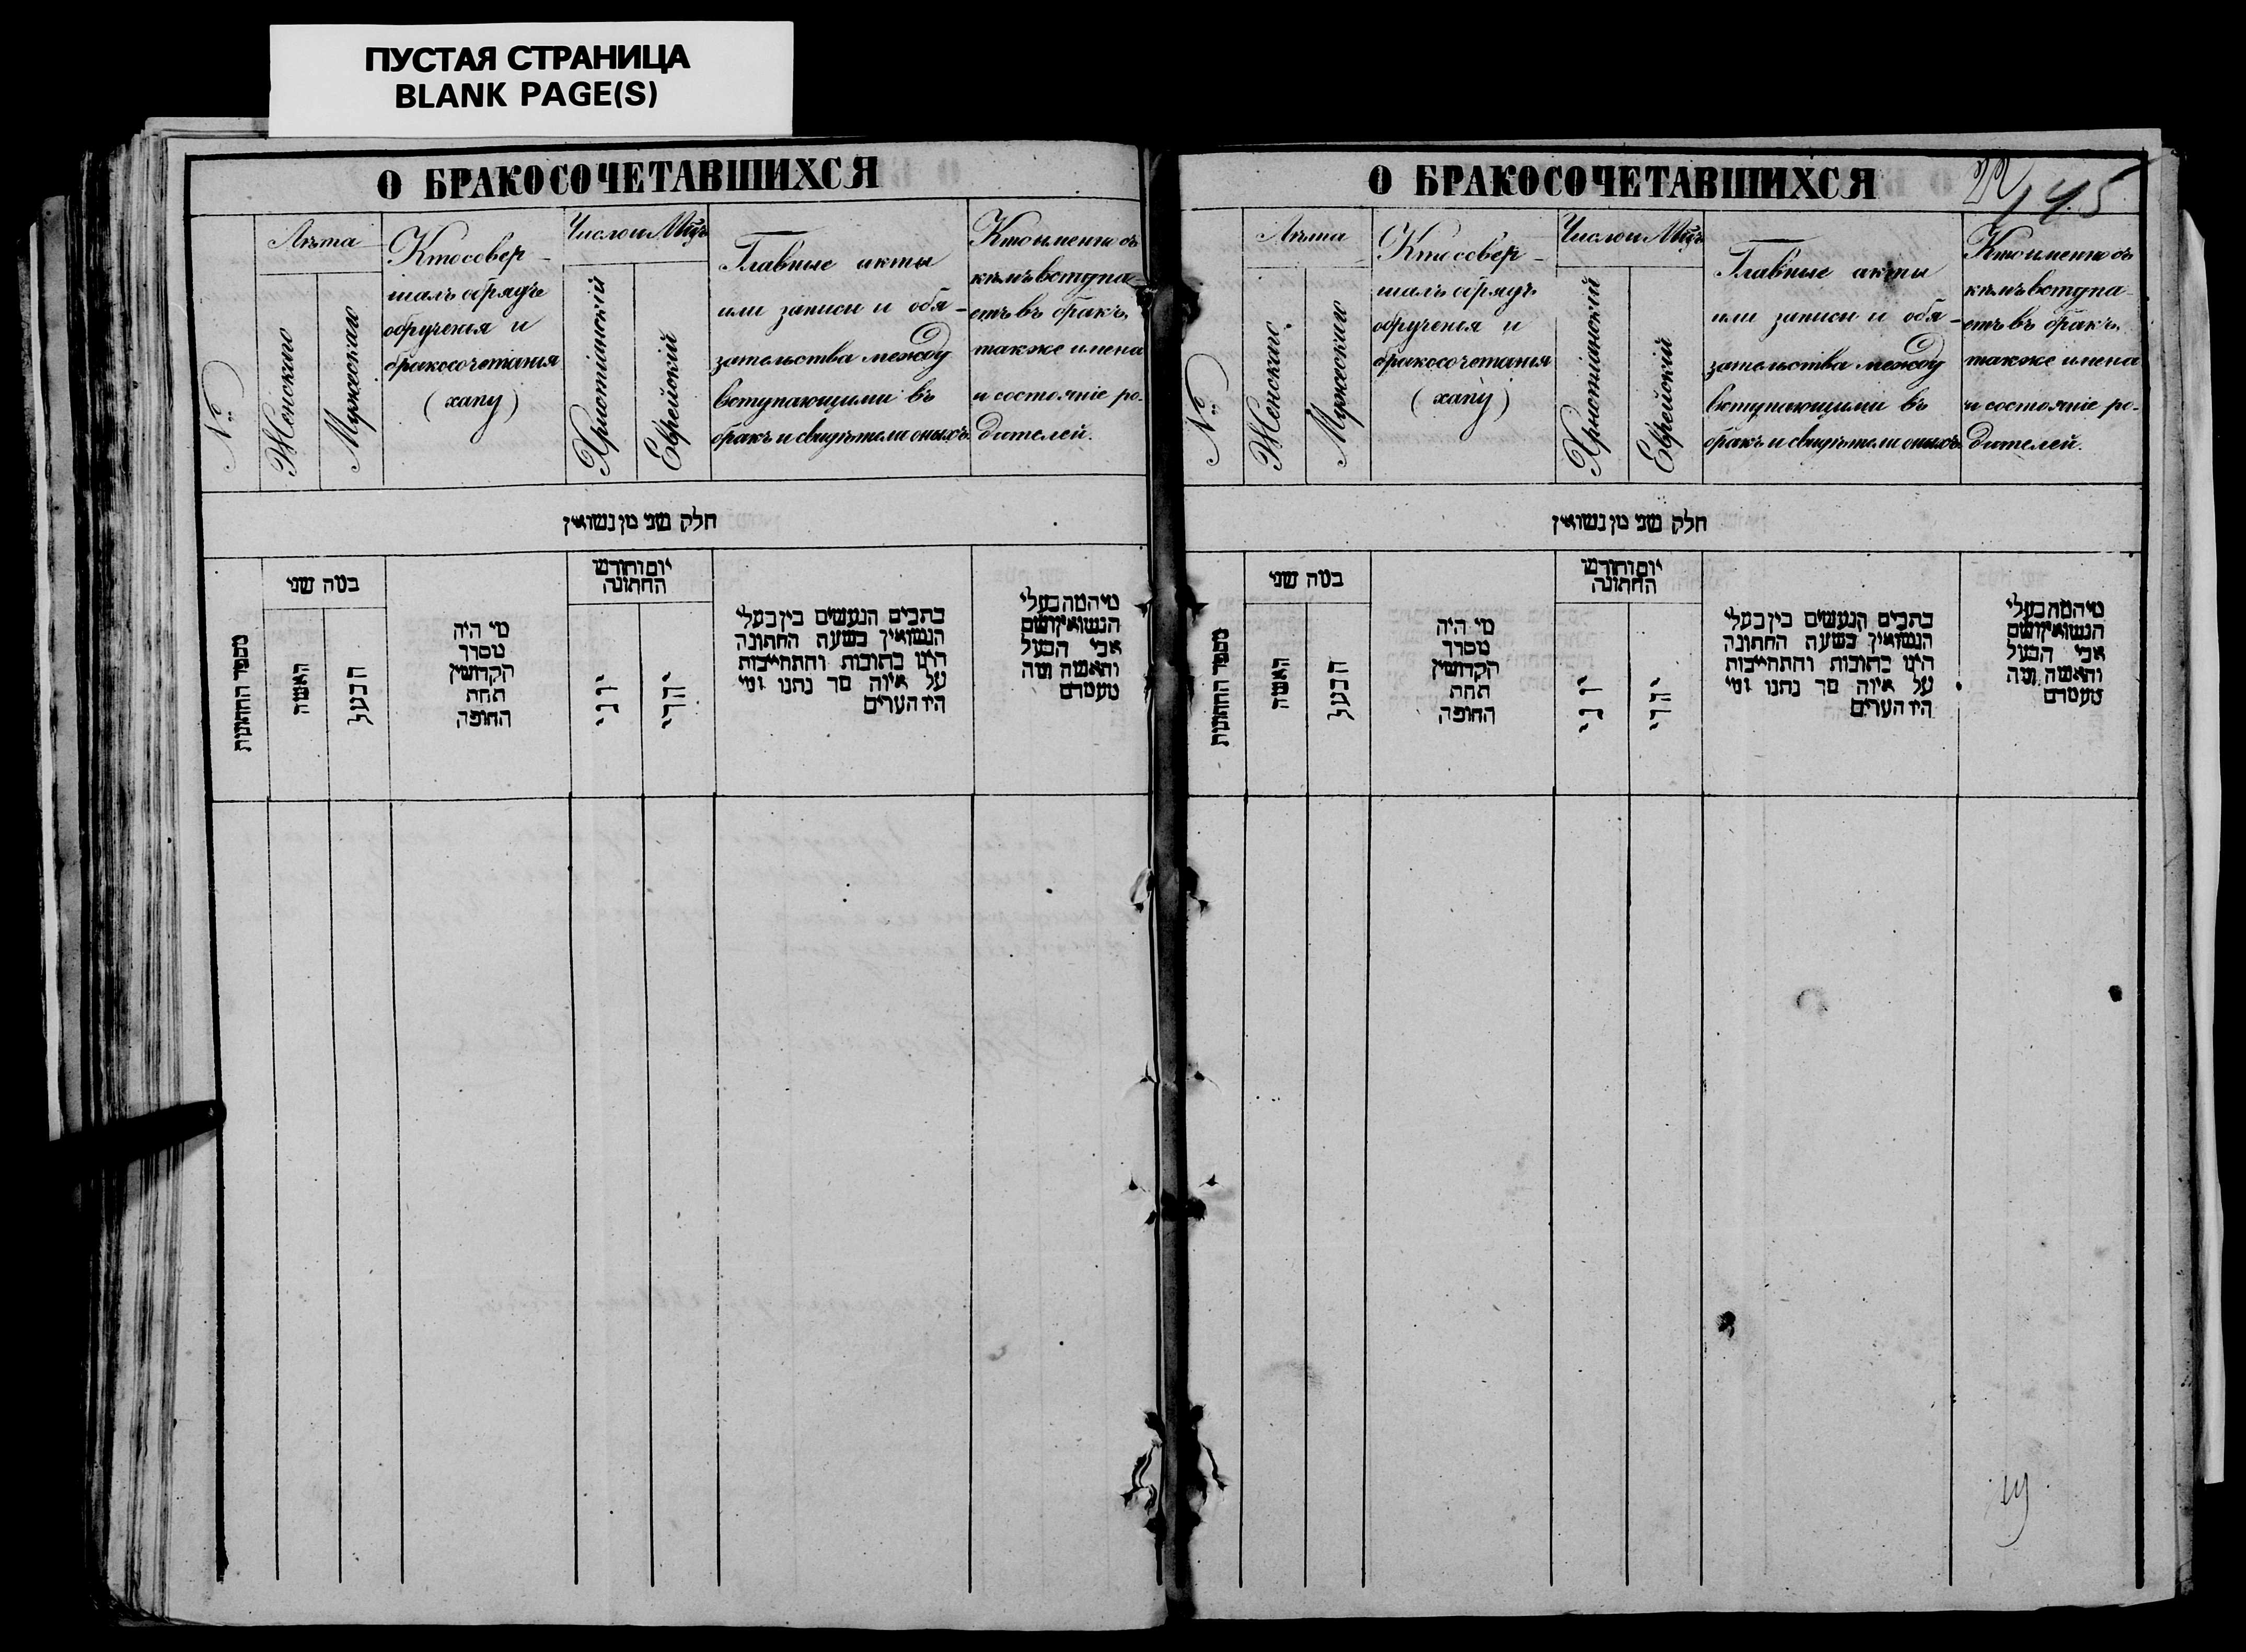 ПУСТАЯ СТРАНИЦА
BLANK PAGE(S)
О БРАКОСОЧЕТАВШИХСЯ
№
Лѣта
Женскаго
Мужескаго
Кто совер-
шалъ обрядъ
обрученія и
бракосочетанія
(хапу)
Число и Мѣц
Христіанскій
Еврейскій
Главные акты
или записи и обя-
зательства между
вступающими въ
бракъ и свидѣтели оныхъ
Кто именно съ
кѣмъ вступа-
етъ въ бракъ,
также имена
и состояніе ро-
дителей.
חלק שני מן נשואין
מספר החתונות
כמה שני
האשה
הבעל
מי היה
מסדר
הקדושין
תחת
החופה
יום וחודש
החתונה
יוני
יהדי
כתבים הנעשים בין בעלי
הנשואין בשעת החתונה
היינו כתובות והתחייבות
על איזה סך נתנו ומי
היו העדים
מי המה בעלי
הנשואין ושם
אבי הבעל
והאשה ומה
מעמדם
О БРАКОСОЧЕТАВШИХСЯ
22
145
№
Лѣта
Женскаго
Мужескаго
Кто совер-
шалъ обрядъ
обрученія и
бракосочетанія
(хапу)
Число и Мѣц
Христіанскій
Еврейскій
Главные акты
или записи и обя-
зательства между
вступающими въ
бракъ и свидѣтели оныхъ
Кто именно съ
кѣмъ вступа-
етъ въ бракъ,
также имена
и состояніе ро-
дителей.
חלק שני מן נשואין
מספר החתונות
כמה שני
האשה
הבעל
מי היה
מסדר
הקדושין
תחת
החופה
יום וחודש
החתונה
יוני
יהדי
כתבים הנעשים בין בעלי
הנשואין בשעת החתונה
היינו כתובות והתחייבות
על איזה סך נתנו ומי
היו העדים
מי המה בעלי
הנשואין ושם
אבי הבעל
והאשה ומה
מעמדם